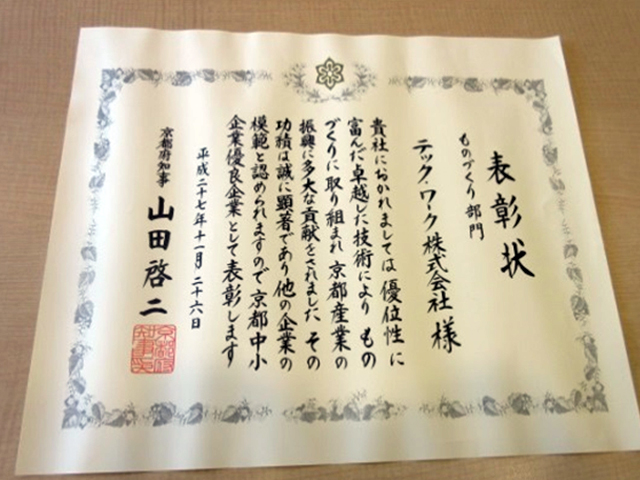 表彰状
ものづくり部門
テック・ワーク株式会社 様
貴社におかれましては優位性に
富んだ卓越した技術により もの
づくりに取り組まれ 京都産業の
振興に多大な貢献をされました その
功績は誠に顕著であり他の企業の
模範と認められますので京都中小
企業優良企業として表彰します
平成二十七年十一月二十六日
京都府知事 山田啓二